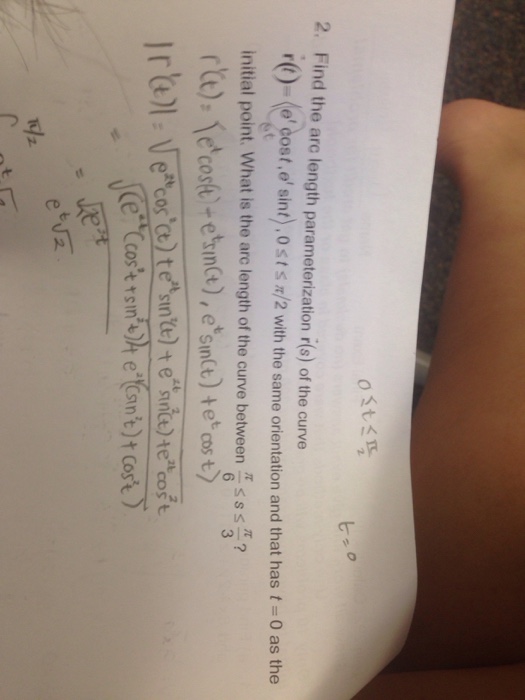 0 ≤ t ≤ π/2
t = 0
2. Find the arc length parameterization r⃗(s) of the curve
r⃗(t) = ⟨eᵗ cos t, eᵗ sin t⟩, 0 ≤ t ≤ π/2 with the same orientation and that has t = 0 as the
initial point. What is the arc length of the curve between π/6 ≤ s ≤ π/3 ?
r'(t) = ⟨eᵗcos(t) - eᵗsin(t), eᵗsin(t) + eᵗcos t⟩
|r'(t)| = √(e²ᵗcos²(t) + e²ᵗsin²(t) + e²ᵗsin²(t) + e²ᵗcos²t
= √((e²ᵗ(cos²t + sin²t)) + e²ᵗ(sin²t) + cos²t)
= √2e²ᵗ
eᵗ√2.
π/2
∫ eᵗ√2